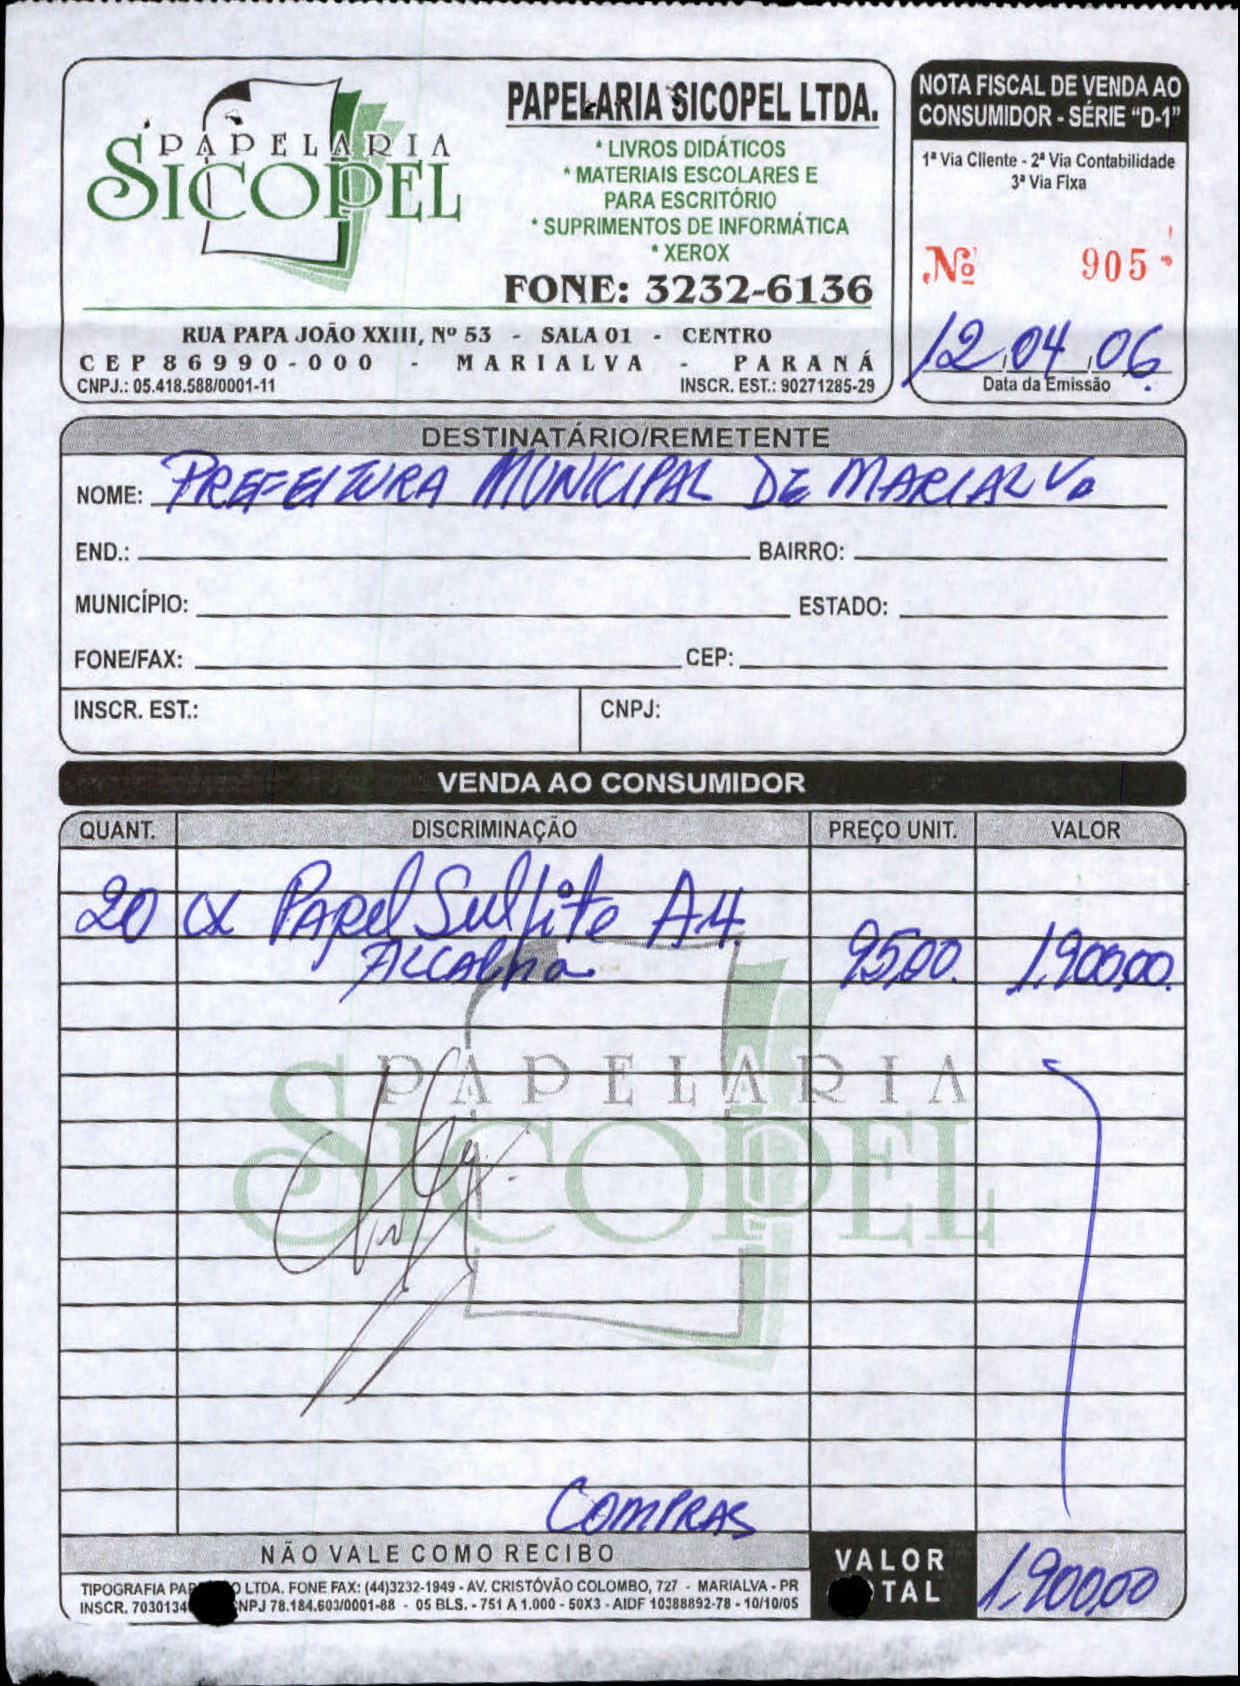 PAPELARIA
SICOPEL
PAPELARIA SICOPEL LTDA.
* LIVROS DIDÁTICOS
* MATERIAIS ESCOLARES E
PARA ESCRITÓRIO
* SUPRIMENTOS DE INFORMÁTICA
* XEROX
FONE: 3232-6136
RUA PAPA JOÃO XXIII, Nº 53 - SALA 01 - CENTRO
CEP 86990-000 - MARIALVA - PARANÁ
CNPJ.: 05.418.588/0001-11 INSCR. EST.: 90271285-29
NOTA FISCAL DE VENDA AO
CONSUMIDOR - SÉRIE "D-1"
1ª Via Cliente - 2ª Via Contabilidade
3ª Via Fixa
Nº 905
12,04,06
Data da Emissão
DESTINATÁRIO/REMETENTE
NOME: PREFEITURA MUNICIPAL DE MARIALVA
END.: BAIRRO:
MUNICÍPIO: ESTADO:
FONE/FAX: CEP:
INSCR. EST.: CNPJ:
VENDA AO CONSUMIDOR
QUANT. DISCRIMINAÇÃO PREÇO UNIT. VALOR
20 cx Papel Sulfite A4.
Alcalina 95,00. 1.900,00.
PAPELARIA
SICOPEL
COMPRAS
NÃO VALE COMO RECIBO
VALOR
TAL 1.900,00
TIPOGRAFIA LTDA. FONE FAX: (44)3232-1949 - AV. CRISTÓVÃO COLOMBO, 727 - MARIALVA - PR
INSCR. 7030134 NPJ 78.184.603/0001-88 - 05 BLS. - 751 A 1.000 - 50X3 - AIDF 10388892-78 - 10/10/05